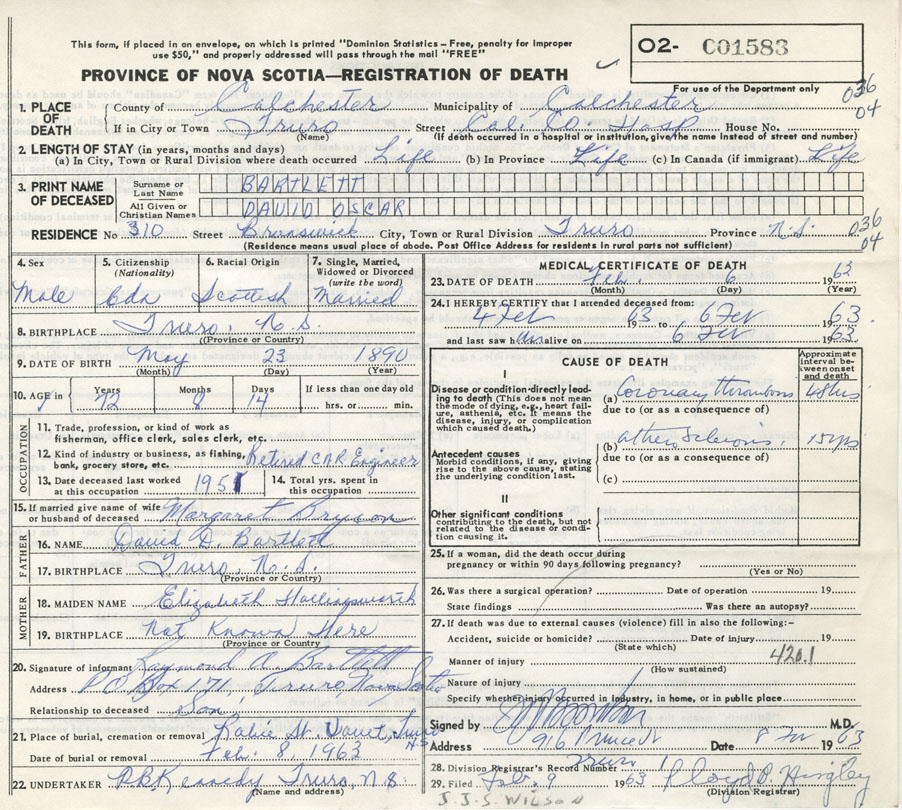 This form, if placed in an envelope, on which is printed "Dominion Statistics – Free, penalty for improper
use $50," and properly addressed will pass through the mail "FREE"
O2- C01583
PROVINCE OF NOVA SCOTIA—REGISTRATION OF DEATH
For use of the Department only
036
04
1. PLACE OF DEATH County of Colchester Municipality of Colchester
If in City or Town Truro Street Col. Co. Hosp House No.
(Name) (If death occurred in a hospital or institution, give the name instead of street and number)
2. LENGTH OF STAY (in years, months and days)
(a) In City, Town or Rural Division where death occurred Life (b) In Province Life (c) In Canada (if immigrant) Life
3. PRINT NAME OF DECEASED Surname or Last Name BARTLETT
All Given or Christian Names DAVID OSCAR
RESIDENCE No 310 Street Brunswick City, Town or Rural Division Truro Province N.S.
036
04
(Residence means usual place of abode. Post Office Address for residents in rural parts not sufficient)
4. Sex 5. Citizenship (Nationality) 6. Racial Origin 7. Single, Married, Widowed or Divorced (write the word)
Male Cdn Scottish Married
8. BIRTHPLACE Truro, N.S.
(Province or Country)
9. DATE OF BIRTH May 23 1890
(Month) (Day) (Year)
10. AGE in Years Months Days If less than one day old
72 8 14 hrs. or min.
OCCUPATION
11. Trade, profession, or kind of work as
fisherman, office clerk, sales clerk, etc.
12. Kind of industry or business, as fishing,
bank, grocery store, etc. Retired CNR Engineer
13. Date deceased last worked
at this occupation 1951
14. Total yrs. spent in
this occupation
15. If married give name of wife
or husband of deceased Margaret Bryson
FATHER
16. NAME David D. Bartlett
17. BIRTHPLACE Truro, N.S.
(Province or Country)
MOTHER
18. MAIDEN NAME Elizabeth Hollingsworth
19. BIRTHPLACE Not Known Here
(Province or Country)
20. Signature of informant Raymond A. Bartlett
Address P.O Box 171, Truro, Nova Scotia
Relationship to deceased Son
21. Place of burial, cremation or removal Robie St. Truro
N.S
Date of burial or removal Feb. 8, 1963
22. UNDERTAKER Kennedy Truro, N.S
(Name and address)
MEDICAL CERTIFICATE OF DEATH
23. DATE OF DEATH Feb. 6 63
(Month) (Day) (Year)
24. I HEREBY CERTIFY that I attended deceased from:
4 Feb 19 63 to 6 Feb 19 63.
and last saw him alive on 6 Feb 19 63.
CAUSE OF DEATH
Approximate interval between onset and death
I
Disease or condition directly leading
to death (This does not mean
the mode of dying, e.g., heart failure,
asthenia, etc. It means the
disease, injury, or complication
which caused death.)
(a) Coronary thrombosis 48 hrs
due to (or as a consequence of)
Antecedent causes
Morbid conditions, if any, giving
rise to the above cause, stating
the underlying condition last.
(b) athero sclerosis 15 yrs
due to (or as a consequence of)
(c)
II
Other significant conditions
contributing to the death, but not
related to the disease or condition
causing it.
25. If a woman, did the death occur during
pregnancy or within 90 days following pregnancy?
(Yes or No)
26. Was there a surgical operation? Date of operation 19
State findings Was there an autopsy?
27. If death was due to external causes (violence) fill in also the following:–
Accident, suicide or homicide? Date of injury 19
(State which)
420.1
Manner of injury
(How sustained)
Nature of injury
Specify whether injury occurred in industry, in home, or in public place
Signed by M.D.
Address 916 Prince St Date 8 Feb 19 63
Truro
28. Division Registrar's Record Number
29. Filed Feb. 9 1963 Lloyd Hingley
(Division Registrar)
J.J.S. WILSON